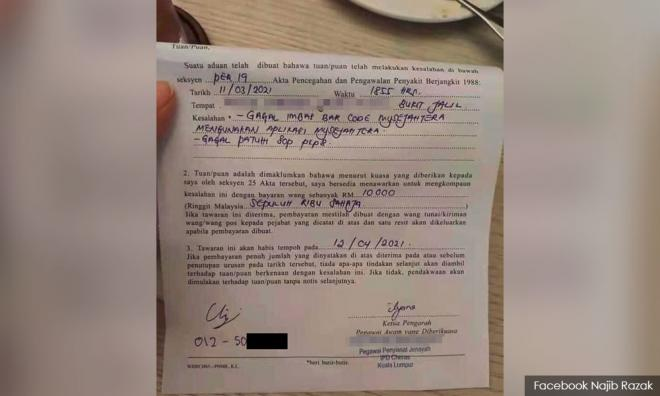 Tuan/Puan,
Suatu aduan telah dibuat bahawa tuan/puan telah melakukan kesalahan di bawah
seksyen PER 19 Akta Pencegahan dan Pengawalan Penyakit Berjangkit 1988:
Tarikh 11/03/2021 Waktu 1855 HRS.
Tempat BUKIT JALIL
Kesalahan - GAGAL IMBAS BAR CODE MYSEJAHTERA
MENGUNAKAN APLIKASI MYSEJAHTERA.
- GAGAL PATUH SOP PKPB.
2. Tuan/Puan adalah dimaklumkan bahawa menurut kuasa yang diberikan kepada
saya oleh seksyen 25 Akta tersebut, saya bersedia menawarkan untuk mengkompaun
kesalahan ini dengan bayaran wang sebanyak RM 10 000
(Ringgit Malaysia SEPULUH RIBU SAHAJA )
Jika tawaran ini diterima, pembayaran mestilah dibuat dengan wang tunai/kiriman
wang/wang pos kepada pejabat yang dicatat di atas dan satu resit akan dikeluarkan
apabila pembayaran dibuat.
3. Tawaran ini akan habis tempoh pada 12/04/2021.
Jika pembayaran penuh jumlah yang dinyatakan di atas diterima pada atau sebelum
penutupan urusan pada tarikh tersebut, tiada apa-apa tindakan selanjut akan diambil
terhadap tuan/puan berkenaan dengan kesalahan ini. Jika tidak, pendakwaan akan
dimulakan terhadap tuan/puan tanpa notis selanjutnya.
012 - 50
Ketua Pengarah
Pegawai Awam yang Diberikuasa
Pegawai Penyiasat Jenayah
IPD Cheras
Kuala Lumpur
*butir-butir.
Facebook Najib Razak